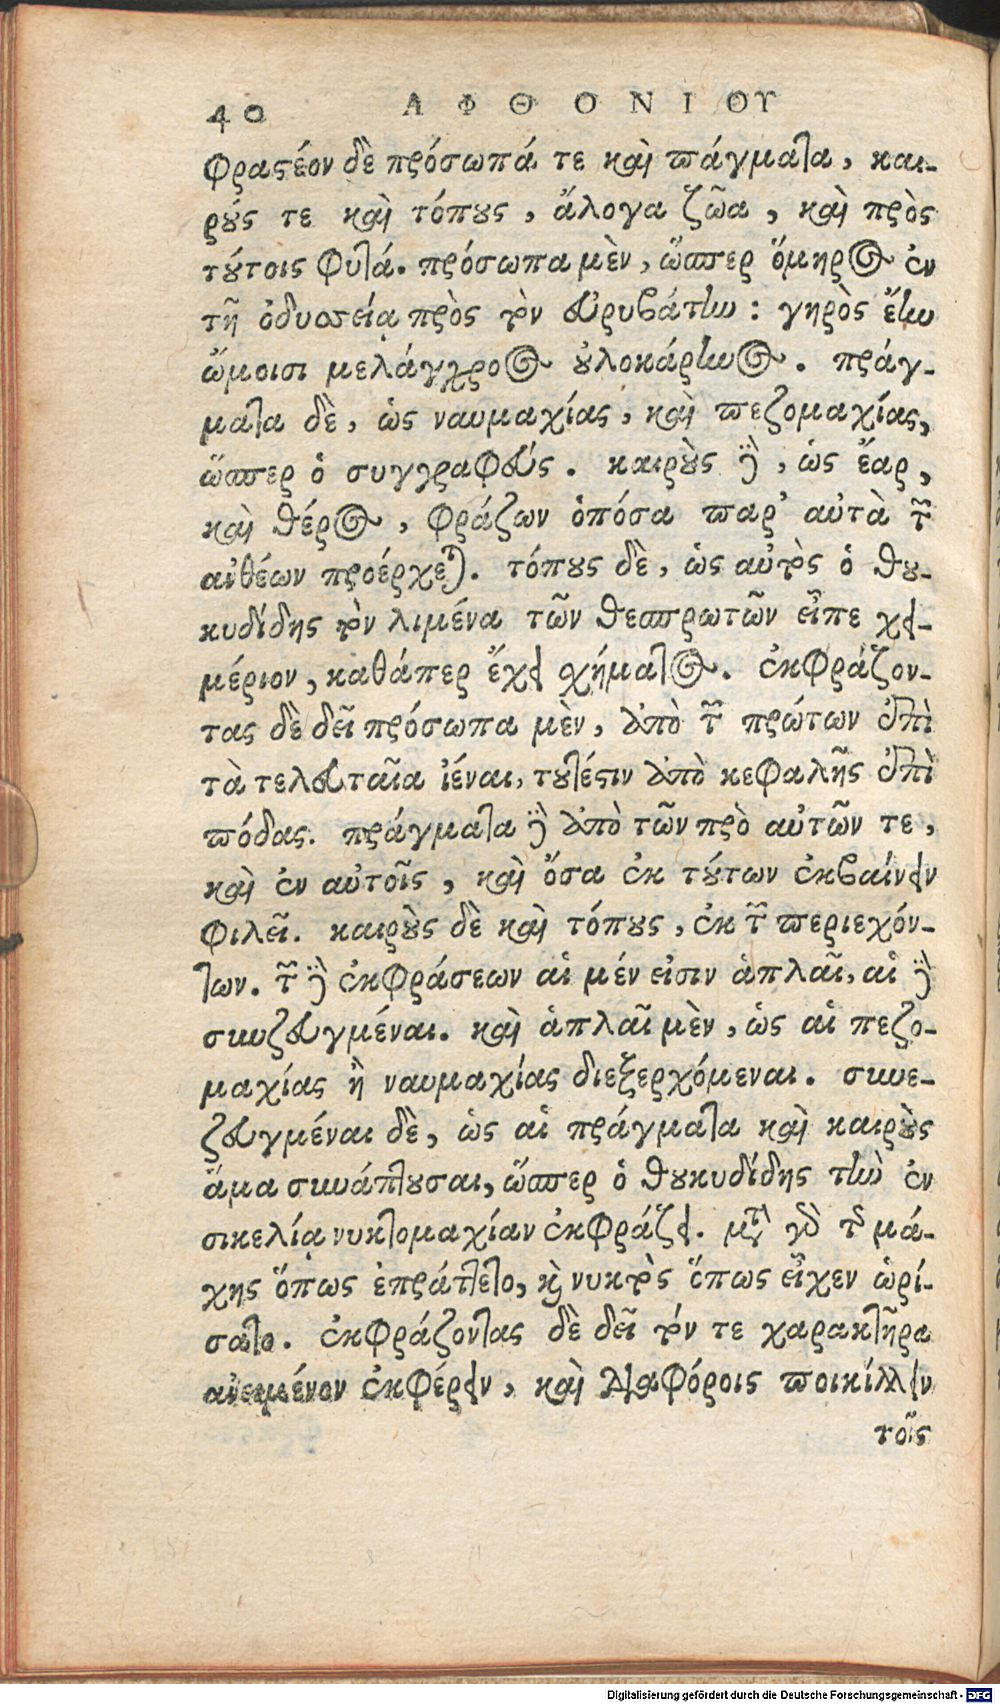 40 ΑΦΘΟΝΙΟΥ
φραστέον δὲ πρόσωπά τε καὶ πάγματα, και-
ρούς τε καὶ τόπους, ἄλογα ζῶα, καὶ πρὸς
τούτοις φυτά. πρόσωπα μὲν, ὥσπερ ὅμηρος ἐν
τῇ ὀδυσσείᾳ πρὸς τὸν εὐρυβάτην: γηρὸς ἔην
ὤμοισι μελάγχροος οὐλοκάρηνος. πράγ-
ματα δὲ, ὡς ναυμαχίας, καὶ πεζομαχίας,
ὥσπερ ὁ συγγραφεύς. καιροὺς δὲ, ὡς ἔαρ,
καὶ θέρος, φράζων ὁπόσα παρ' αὐτὰ τῶν
ἀνθέων προέρχεται. τόπους δὲ, ὡς αὐτὸς ὁ θου-
κυδίδης τὸν λιμένα τῶν θεσπρωτῶν εἶπε χει-
μέριον, καθάπερ ἔχει σχήματος. ἐκφράζον-
τας δὲ δεῖ πρόσωπα μὲν, ἀπὸ τῶν πρώτων ἐπὶ
τὰ τελευταῖα ἰέναι, τουτέστιν ἀπὸ κεφαλῆς ἐπὶ
πόδας. πράγματα δὲ ἀπὸ τῶν πρὸ αὐτῶν τε,
καὶ ἐν αὐτοῖς, καὶ ὅσα ἐκ τούτων ἐκβαίνειν
φιλεῖ. καιροὺς δὲ καὶ τόπους, ἐκ τῶν περιεχόν-
των. τῶν δὲ ἐκφράσεων αἱ μέν εἰσιν ἁπλαῖ, αἱ δὲ
συνεζευγμέναι. καὶ ἁπλαῖ μὲν, ὡς αἱ πεζο-
μαχίας ἢ ναυμαχίας διεξερχόμεναι. συνε-
ζευγμέναι δὲ, ὡς αἱ πράγματα καὶ καιροὺς
ἅμα συνάπτουσαι, ὥσπερ ὁ θουκυδίδης τὴν ἐν
σικελίᾳ νυκτομαχίαν ἐκφράζει. μετὰ γὰρ τοῦ μά-
χης ὅπως ἐπράττετο, καὶ νυκτὸς ὅπως εἶχεν ὡρί-
σατο. ἐκφράζοντας δὲ δεῖ τόν τε χαρακτῆρα
ἀνειμένον ἐκφέρειν, καὶ διαφόροις ποικίλλειν
τοῖς
Digitalisierung gefördert durch die Deutsche Forschungsgemeinschaft - DFG